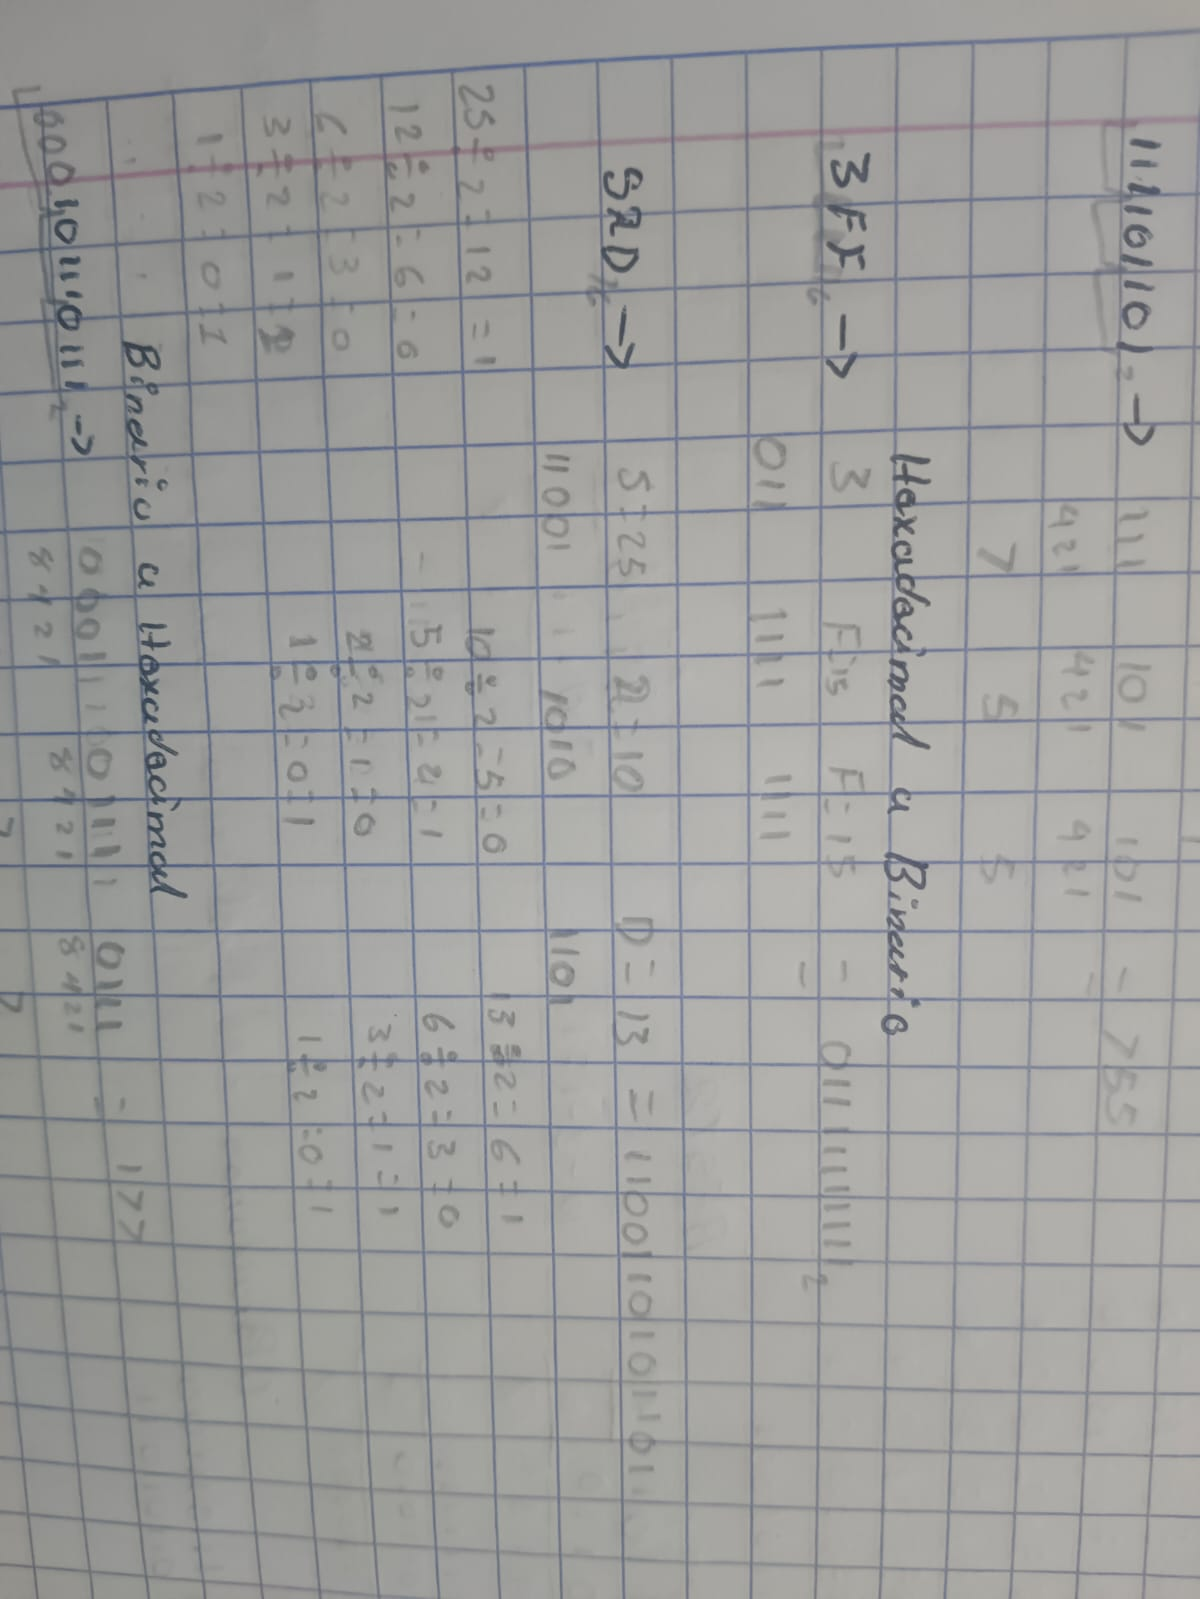 111101101₂ → 111 101 101 = 755
421 421 421
7 5 5
Hexadecimal a Binario
3FF₁₆ → 3 F=15 F=15 = 01111111111₂
011 1111 1111
S2D₁₆ → S=25 2=10 D=13 = 1100110101101
11001 1010 1101
25÷2=12=1 10÷2=5=0 13÷2=6=1
12÷2=6=0 5÷2=2=1 6÷2=3=0
6÷2=3=0 2÷2=1=0 3÷2=1=1
3÷2=1=1 1÷2=0=1 1÷2=0=1
1÷2=0=1
Binario a Hexadecimal
000101110111₂ → 0001 0111 0111 = 177
8421 8421 8421
7 7